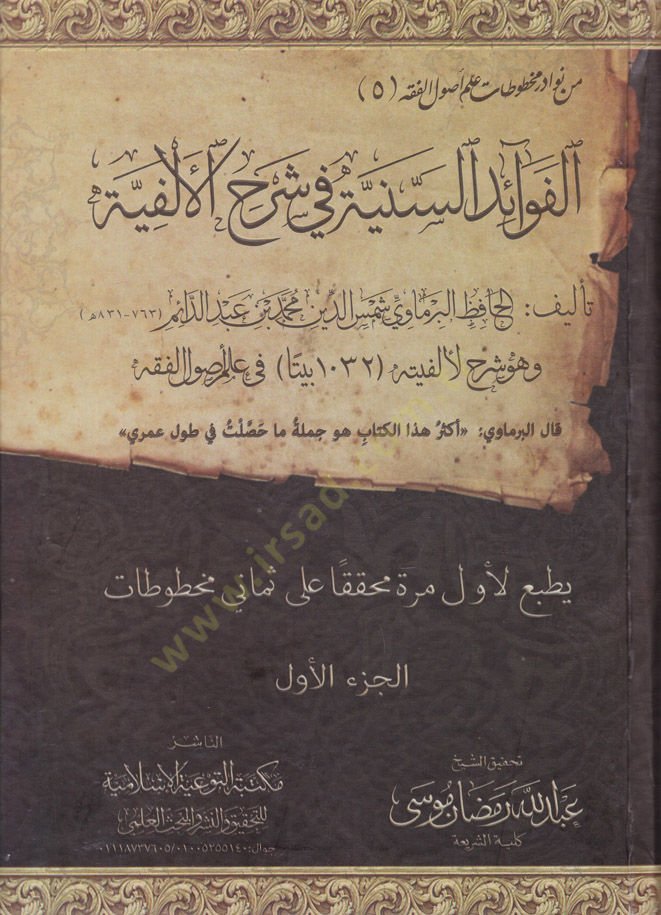 من نوادر مخطوطات علم أصول الفقه (٥)
الفوائد السنية في شرح الألفية
تأليف: الحافظ البرماوي شمس الدين محمد بن عبد الدائم (٧٦٣-٨٣١هـ)
وهو شرح لألفيته (١٠٣٢ بيتا) في علم أصول الفقه
قال البرماوي: «أكثرُ هذا الكتابِ هو جملةُ ما حَصَّلْتُ في طول عمري»
يطبع لأول مرة محققًا على ثماني مخطوطات
الجزء الأول
تحقيق الشيخ
عبد الله رمضان موسى
كلية الشريعة
الناشر
مكتبة التوعية الإسلامية
للتحقيق والنشر والبحث العلمي
جوال: ٠١٠٠٥٢٥٥١٤٠/٠١١١٨٧٣٧٦٠٥
www.irsad